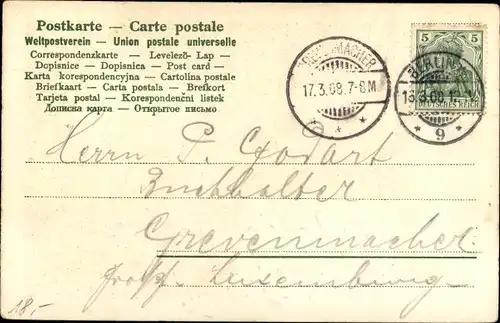 Postkarte — Carte postale
Weltpostverein — Union postale universelle
Correspondenzkarte — Levelezö- Lap —
Dopisnice — Dopisnica — Post card —
Karta korespondencyjna — Cartolina postale
Briefkaart — Carta postala — Brefkort
Tarjeta postal — Korespondenční listek
Дописна карта — Открытое письмо
GREVENMACHER
17.3.08.7-8M
5 5
BERLIN
DEUTSCHES REICH
9
Herrn P. Godart
Buchhalter
Grevenmacher
Luxemburg
18,-